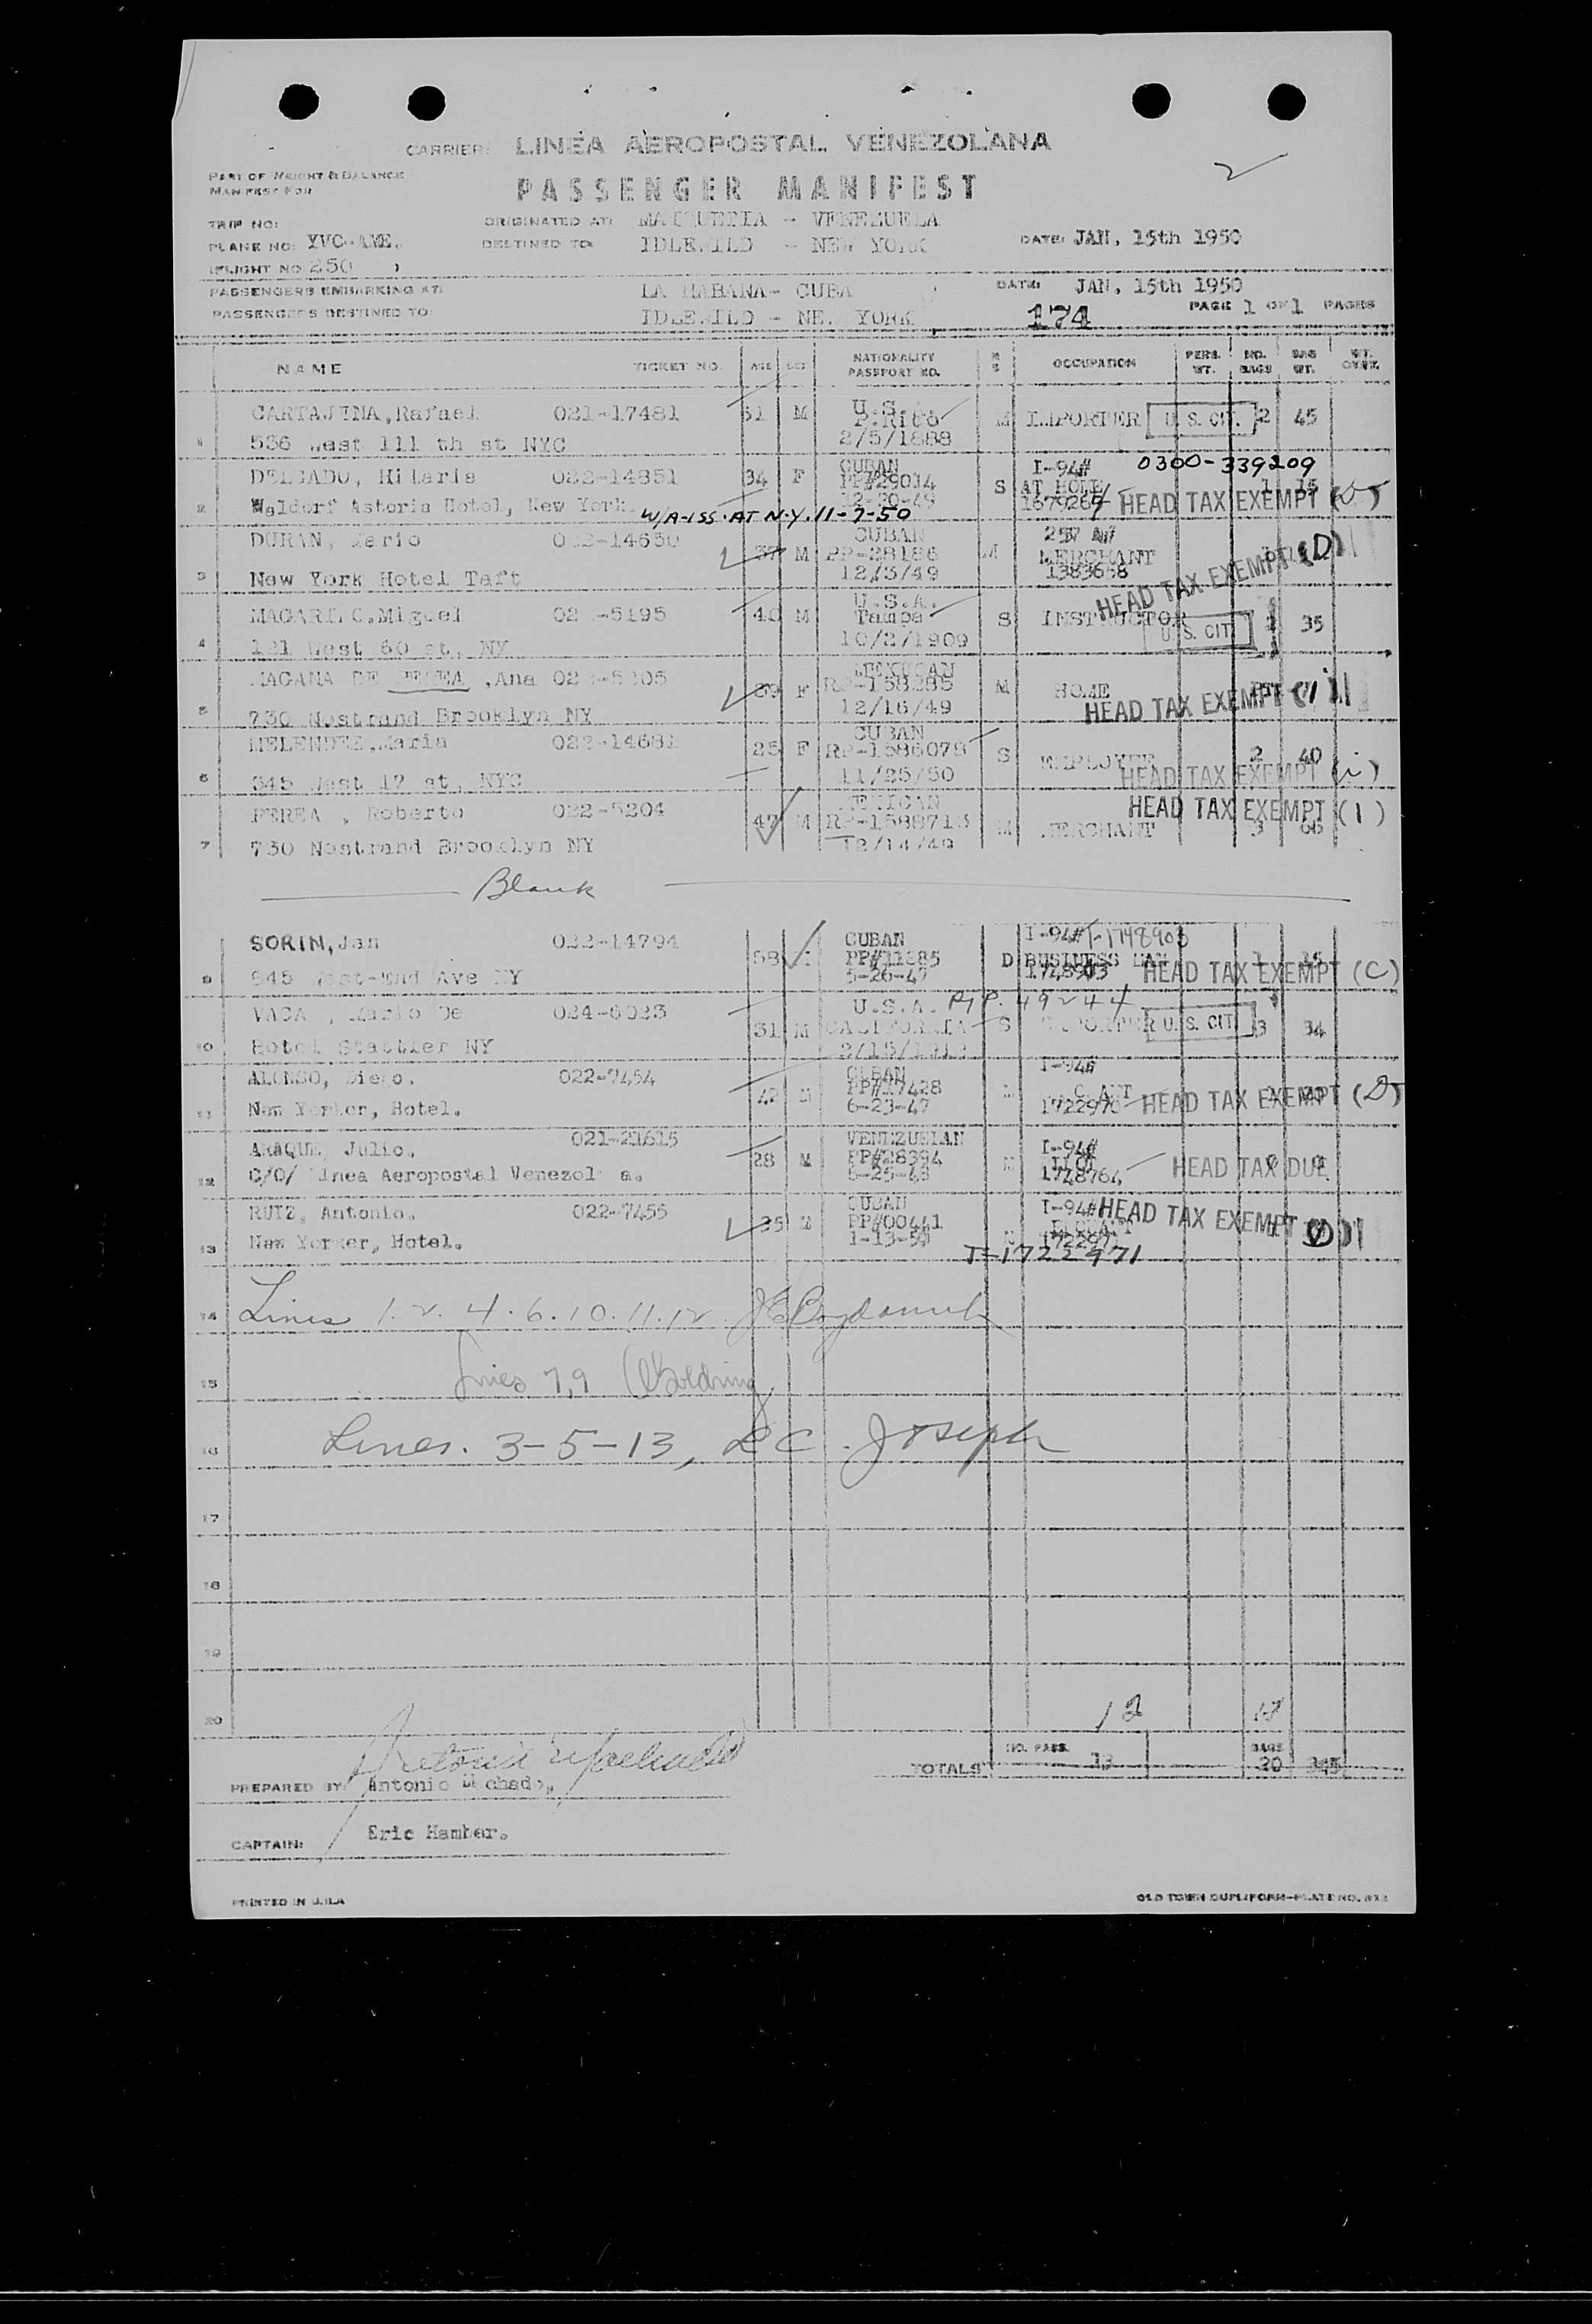 CARRIER: LINEA AEROPOSTAL VENEZOLANA
2
PART OF WEIGHT & BALANCE
MANIFEST FOR
PASSENGER MANIFEST
TRIP NO:
ORIGINATED AT: MAIQUETIA - VENEZUELA
PLANE NO: YVC-AME.
DESTINED TO: IDLEWILD - NEW YORK
DATE: JAN, 15th 1950
(FLIGHT NO 250 )
PASSENGERS EMBARKING AT: LA HABANA- CUBA
DATE: JAN, 15th 1950
PASSENGERS DESTINED TO: IDLEWILD - NE. YORK
174
PAGE 1 OF 1 PAGES
NAME TICKET NO. AGE SEX NATIONALITY PASSPORT NO. M S OCCUPATION PERS. WT. NO. BAGS BAG WT.
CARTAJENA,Rafael 021-17481 51 M U.S. M IMPORTER U. S. CIT. 2 45
P.Rico
1 536 West 111 th st NYC 2/5/1888
DELGADO, Hilaria 022-14851 34 F CUBAN I-94# 0300-339209
PP#29034 S AT HOME 1 15
2 Waldorf Astoria Hotel, New York. 12-20-49 HEAD TAX EXEMPT
W/A-ISS.AT N.Y. 11-7-50
DURAN, Mario 022-14650 37 M CUBAN
PP-28186 M MERCHANT
3 New York Hotel Taft 12/3/49 1383658 HEAD TAX EXEMPT (D)
Miguel 02 -5195 40 M U.S.A.
Tampa S INSTRUCTOR U. S. CIT. 35
4 121 West 60 st, NY 10/2/1909
MAGANA DE PEREA ,Ana 39 F MEXICAN
M HOME
5 730 Nostrand Brooklyn NY 12/16/49 HEAD TAX EXEMPT
MELENDEZ,Maria 022-14681 25 F CUBAN
RP-1586078 S EMPLOYEE 2 40
6 545 West 17 st, NYC 11/25/50 HEAD TAX EXEMPT
PEREA , Roberto 022-5204 47 M MEXICAN HEAD TAX EXEMPT (1)
RP-1588713 M MERCHANT 3
7 730 Nostrand Brooklyn NY 12/14/49
Blank
SORIN,Jan 022-14794 58 CUBAN I-94# T-1748903
PP#11385 D BUSINESS MAN 1 15
9 645 West-End Ave NY 5-26-47 HEAD TAX EXEMPT (C)
VACA , Mario De 024-6023 31 M U.S.A. P/P. 49244
CALIFORNIA S U. S. CIT. 3 34
10 Hotel Stattler NY
ALONSO, Diego. 022-7454 42 M CUBAN I-94#
PP#17428
11 New Yorker, Hotel. 6-23-47 HEAD TAX EXEMPT (D)
ARAQUE, Julio. 021-21615 28 M VENEZUELAN I-94#
PP#28394
12 C/O/ Linea Aeropostal Venezol a. 1748764 HEAD TAX DUE
RUIZ, Antonio. 022-7455 35 M CUBAN I-94# HEAD TAX EXEMPT
PP#00441
13 New Yorker, Hotel. 1-13-50
T-1722971
14 Lines 1. 2. 4. 6. 10. 11. 12
15 Lines 7,9
16 Lines. 3-5-13, L C. Joseph
17
18
19
20 12 17
TOTALS NO. PASS. 13 BAGS 20 345
PREPARED BY: Antonio Machado,
CAPTAIN: Eric Hamber.
PRINTED IN U.S.A
OLD TOWN DUPLIFORM-PLATE NO.